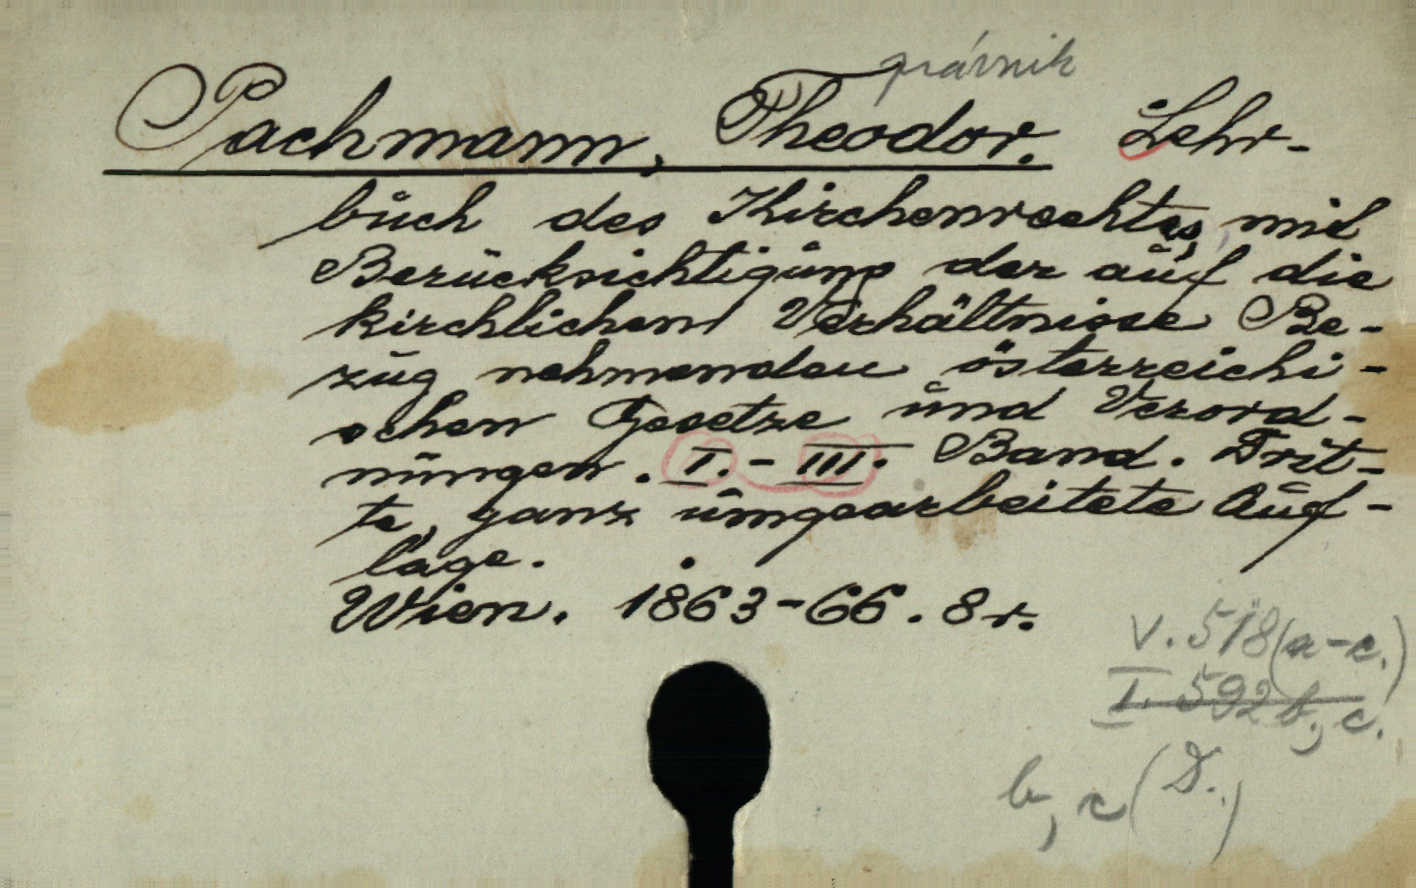 právnik
Pachmann, Theodor. Lehr-
buch des Kirchenrechtes, mit
Berücksichtigung der auf die
kirchlichen Verhältnisse Be-
zug nehmenden österreichi-
schen Gesetze und Verord-
nungen. I.-III. Band. Drit-
te, ganz umgearbeitete Auf-
lage.
Wien. 1863-66. 8r.
V. 518(a-c.)
I. 592 b, c.
b, c (D.)